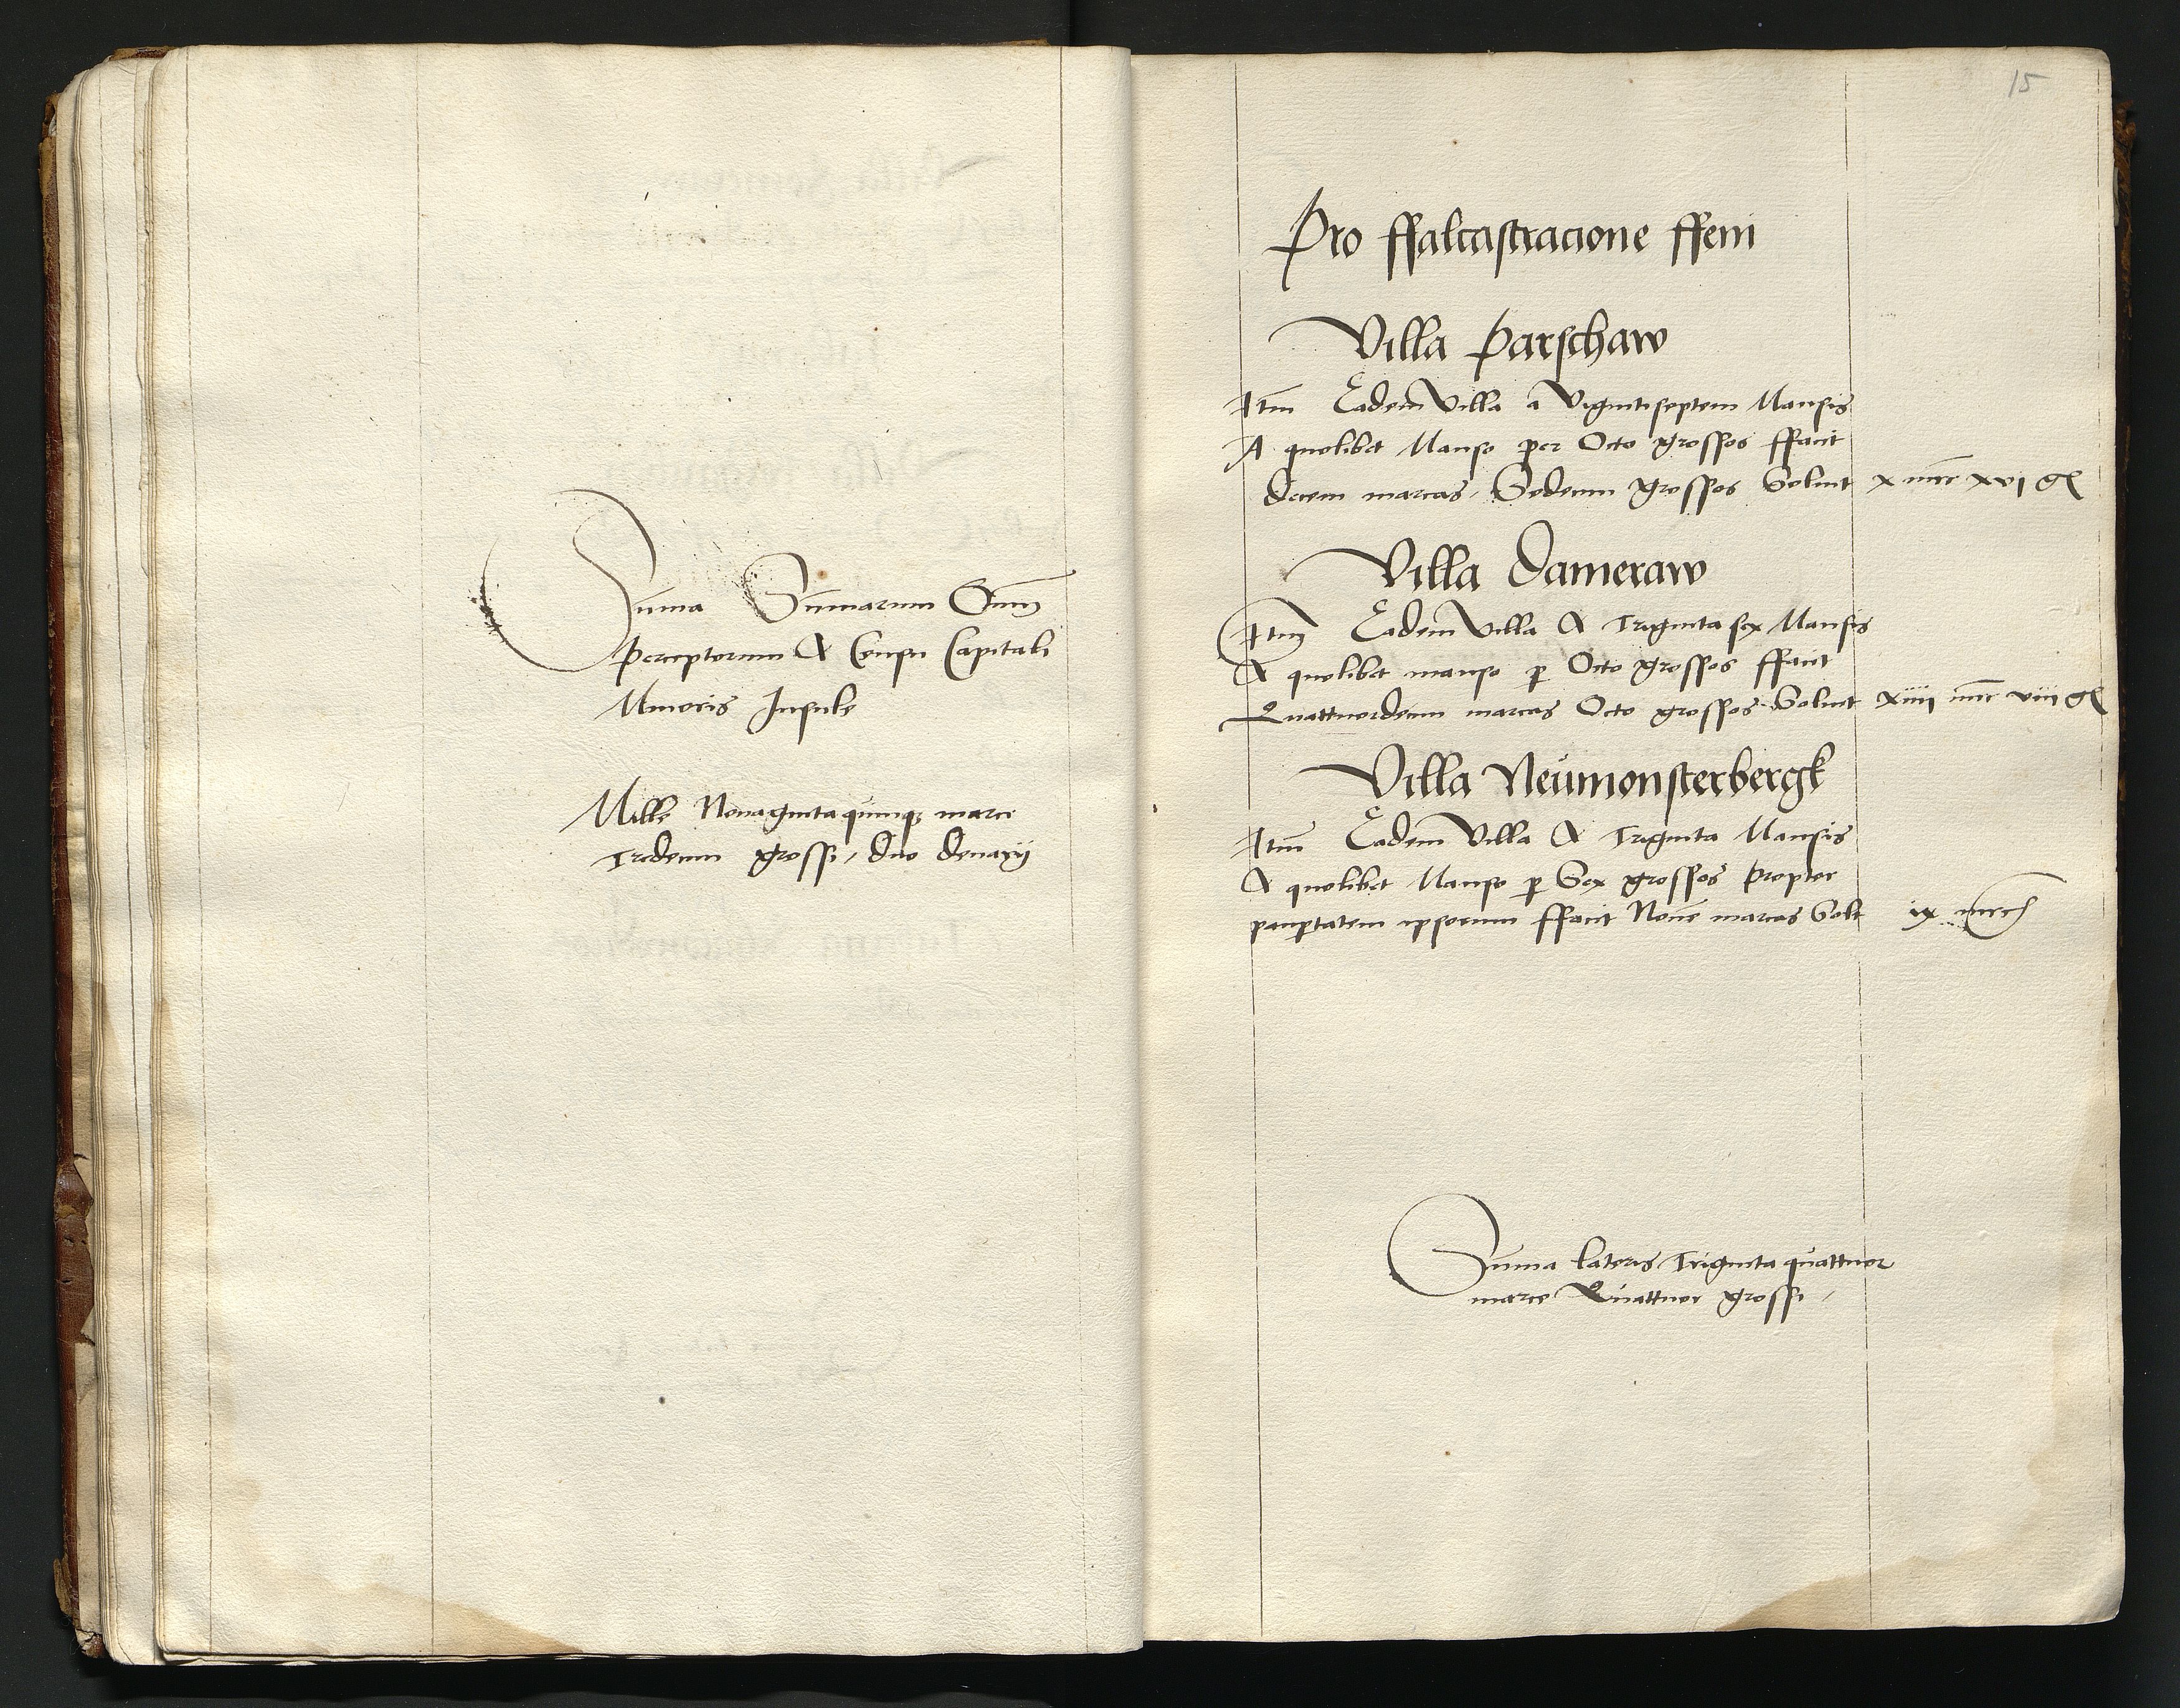 Suma Sumarum Oim
Perceptorum A Censu Capitali
Minoris Insule
Mille Nonagintaquinq marce
Tredecim grossi, duo denarij
15
Pro ffalcastracione ffeni
Villa Parschaw
Itm Eadem Villa a Vigintiseptem Mansis
A quolibet Manso per Octo grossos ffacit
decem marcas, Sedecim grossos Soluit x mrc xvj g
Villa Dameraw
Itm Eadem Villa A Triginta sex Mansis
A quolibet manso p Octo grossos ffacit
Quattuordecim marcas Octo grossos Soluit xiiij mrc viij g
Villa Neumonsterbergk
Itm Eadem Villa A Triginta Mansis
A quolibet Manso p Sex grossos Propter
paupertatem ipsorum ffacit Nouem marcas Solt ix mrc
Suma lateris Triginta quattuor
marce Quattuor grossi,